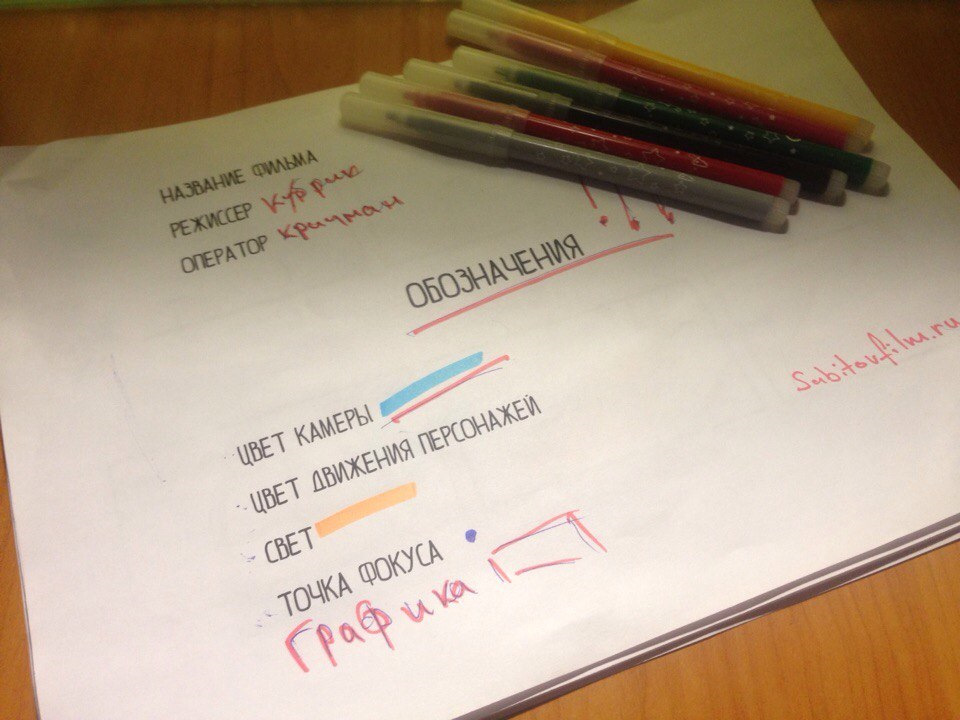 НАЗВАНИЕ ФИЛЬМА
РЕЖИССЕР Кубрик
ОПЕРАТОР Кричман
ОБОЗНАЧЕНИЯ !
Sabitovfilm.ru
ЦВЕТ КАМЕРЫ
ЦВЕТ ДВИЖЕНИЯ ПЕРСОНАЖЕЙ
СВЕТ
ТОЧКА ФОКУСА
Графика